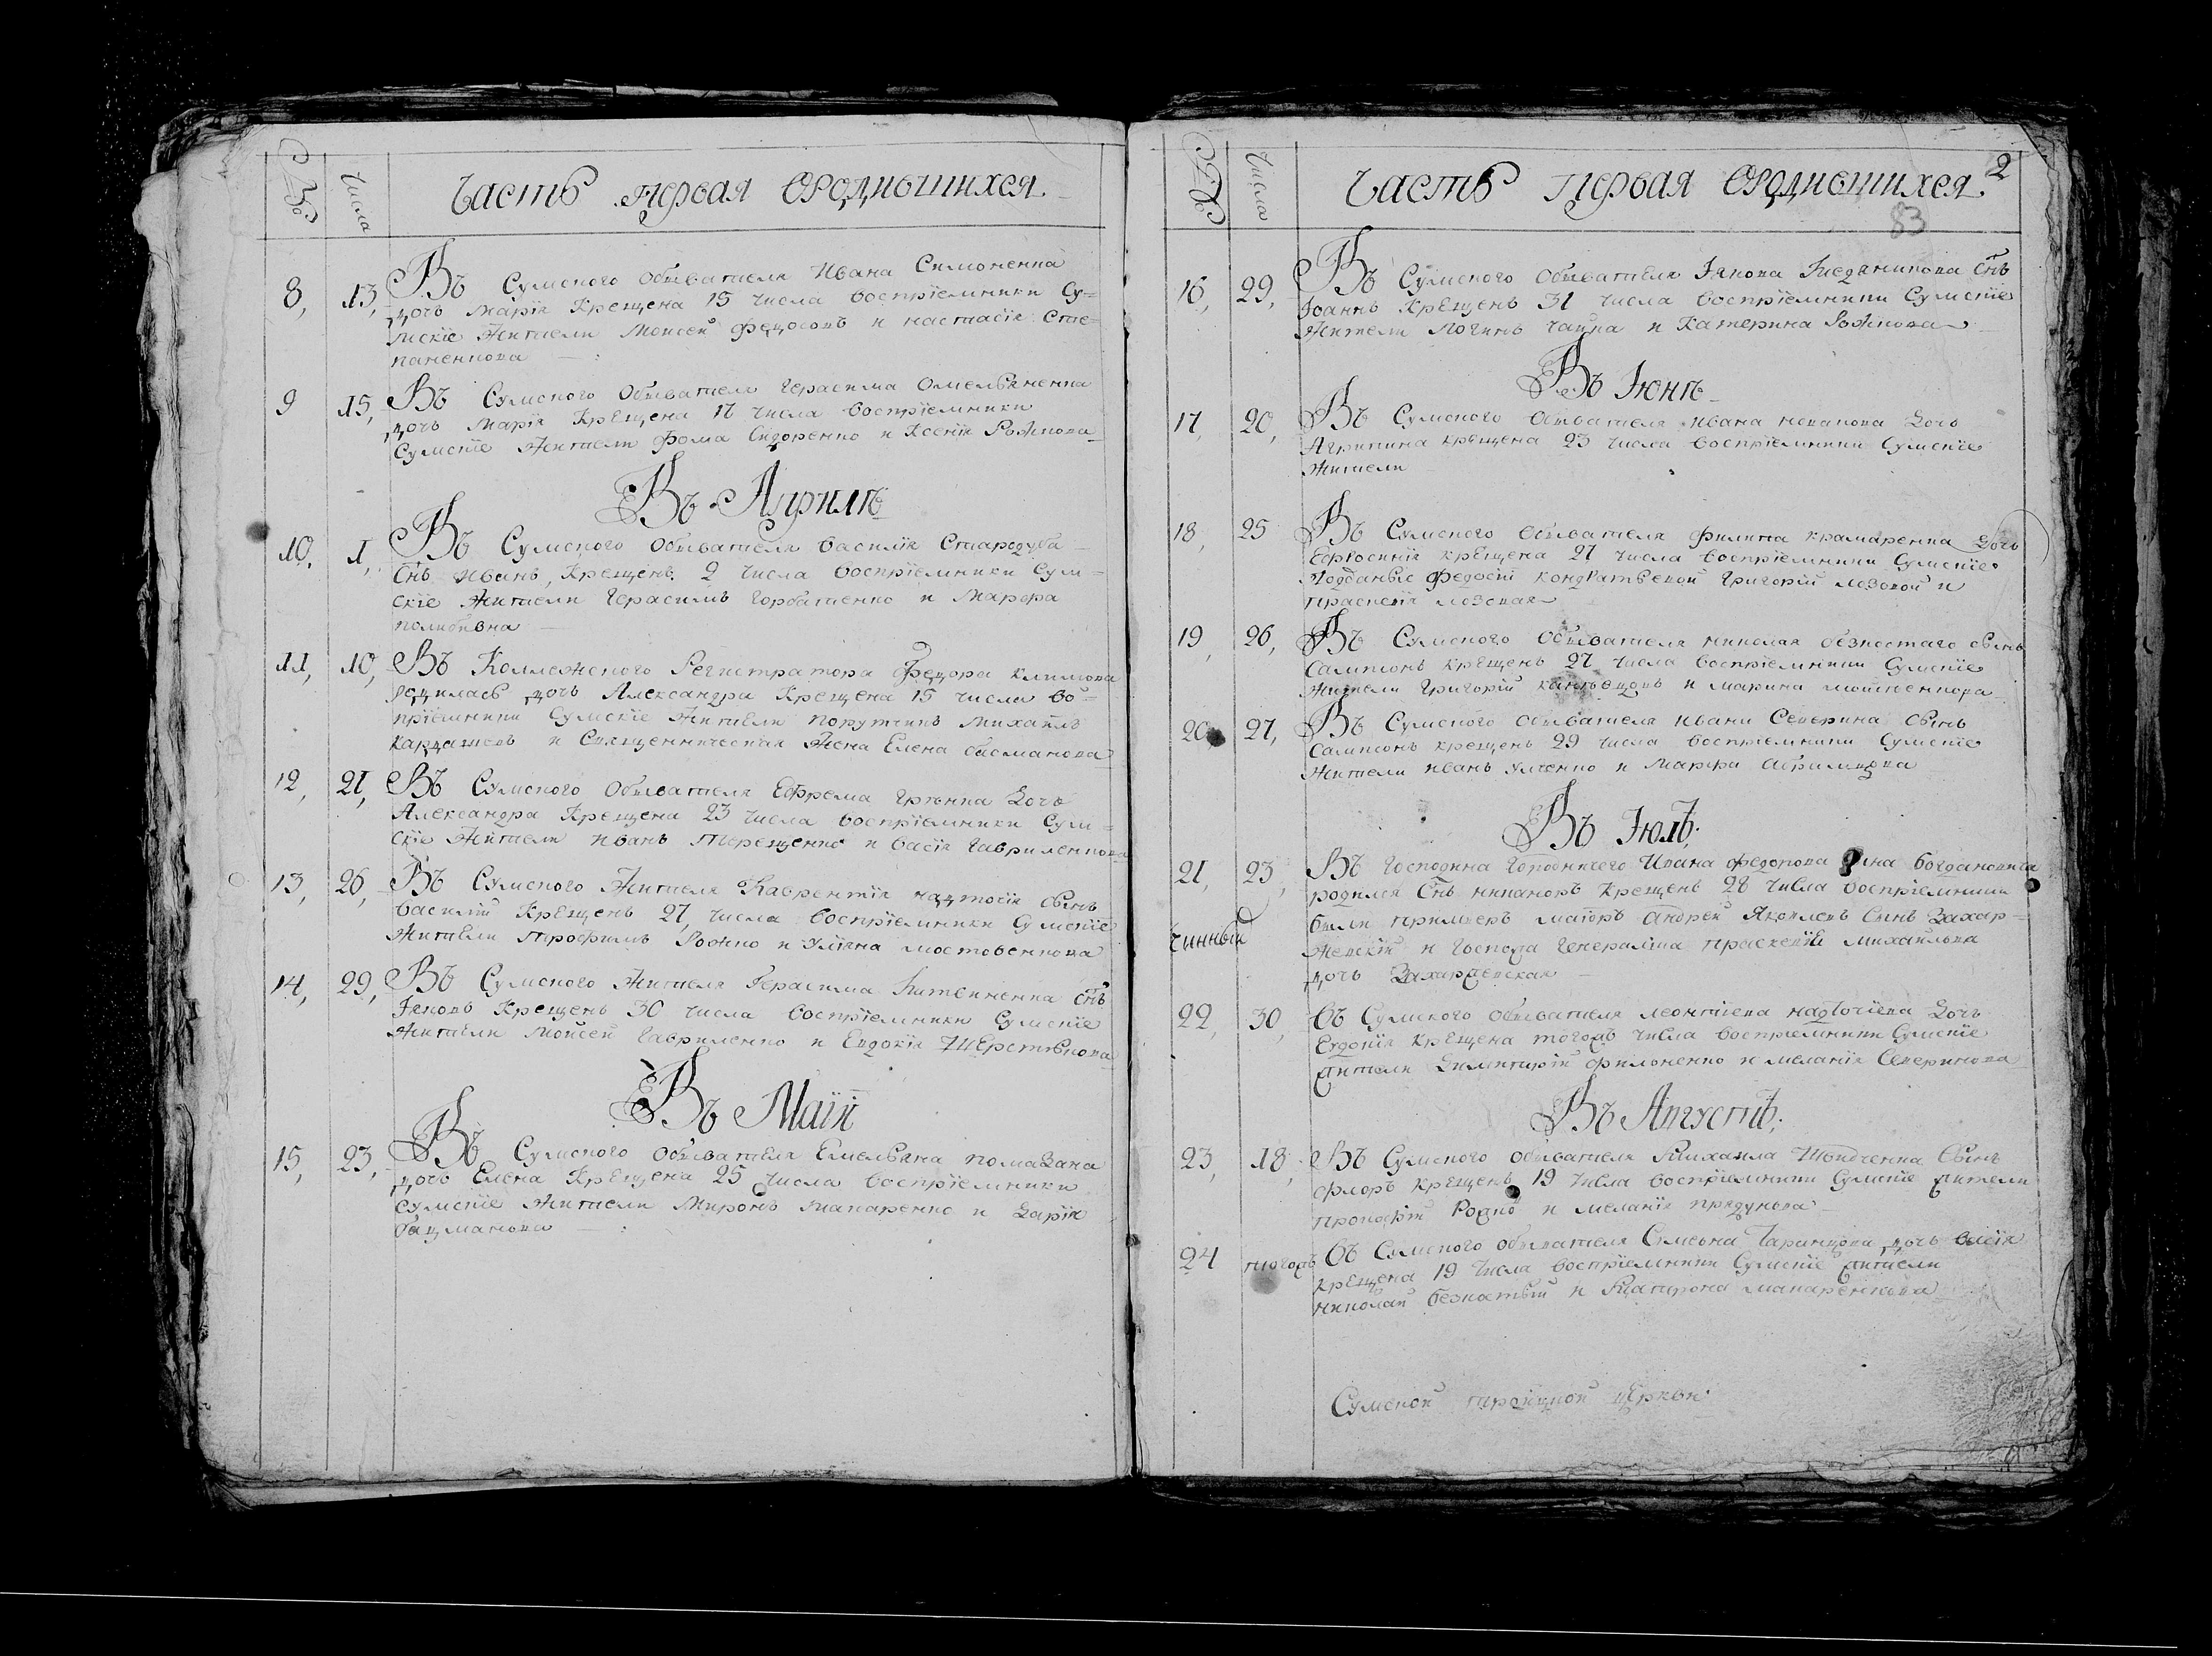 Числа
Часть первая Ородившихся
8, 13, Въ Сумского обывателя Ивана Симоненка
дочь Марія Крещена 15 числа воспріемники Су=
мскіе жители Моисей Федосовъ и настасія Сте=
паненкова
9 15, Въ Сумского обывателя Герасима Омельяненка
дочь Марія Крещена 17 числа воспріемники
Сумскіе жители Фома Сидоренко и Ксенія Рожкова
Въ Априлѣ
10, 1, Въ Сумского обывателя василія Стародуба
Снъ иванъ, Крещенъ 2 числа воспріемники Сум=
скіе жители Герасимъ Горбатенко и Марфа
11, 10, Въ Коллежского Регистратора Федора климова
родилась дочь Александра Крещена 15 числа во=
пріемники Сумскіе жители порутчикъ Михаилъ
Кардашевъ и Священническая жена Елена
12, 21, Въ Сумского обывателя Ефрема дочь
Александра Крещена 23 числа воспріемники Сум=
скіе жители иванъ Терещенко и васія Гавриленкова
13, 26, Въ Сумского жителя Лаврентія надточія сынъ
василій Крещенъ 27, числа воспріемники Сумскіе
жители Трофимъ Рожко и Уліяна мостовенкова
14, 29, Въ Сумского жителя Герасима Литвиненка снъ
Іяковъ Крещенъ 30 числа воспріемники Сумскіе
жители Мойсей Гавриленко и Евдокія
Въ Маіи
15, 23, Въ Сумского обывателя Емельяна помазана
дочь Елена Крещена 25 числа воспріемники
Сумскіе жители Миронъ Макаренко и Дарія
бацманова
Числа
Часть первая Ородившихся 2
83
16, 29, Въ Сумского обывателя Іякова снъ
Іоаннъ Крещенъ 31 числа воспріемники Сумскіе
жители Логинъ чайка и Катерина Рожкова
Въ Іюнѣ
17, 20, Въ Сумского обывателя ивана новакова дочь
Агрипина крещена 23 числа воспріемники Сумскіе
жители
18, 25 Въ Сумского обывателя филипа крамаренка дочь
Ефросинія крещена 27 числа воспріемники Сумскіе
Подданые Федосій Григорій лозовой и
праскевія лозовая
19, 26, Въ Сумского обывателя николая безкостаго сынъ
Сампсонъ крещенъ 27 числа воспріемники Сумскіе
жители Григорій и марина
20, 27, Въ Сумского обывателя ивана Северина сынъ
Сампсонъ крещенъ 29 числа воспріемники Сумскіе
жители иванъ Улченко и Марфа
Въ Іюлѣ;
21, 23, Въ Господина Городничего Ивана Федорова сина Богдановича
родился Снъ никаноръ Крещенъ 28 числа воспріемники
были примиеръ маіоръ андрей Яковлевъ Сынъ Захар=
чинный
жевскій и Госпожа Генералша праскевія михайлова
дочь Захаржевская
22, 30, Въ Сумского обывателя леонтіева надточіева дочь
Евдокія крещена тогожъ числа воспріемники Сумскіе
жители Димитрій филоненко и меланія Северинова
Въ Августѣ;
23, 18, Въ Сумского обывателя Михаила сынъ
Флоръ крещенъ 19 числа воспріемники Сумскіе жители
прокофій Рожко и меланія прядунова
24 тогожъ Въ Сумского обывателя Симеона дочь васія
крещена 19 числа воспріемники Сумскіе жители
николай безкостый и Матрона макаренкова
Сумской троицкой церкви